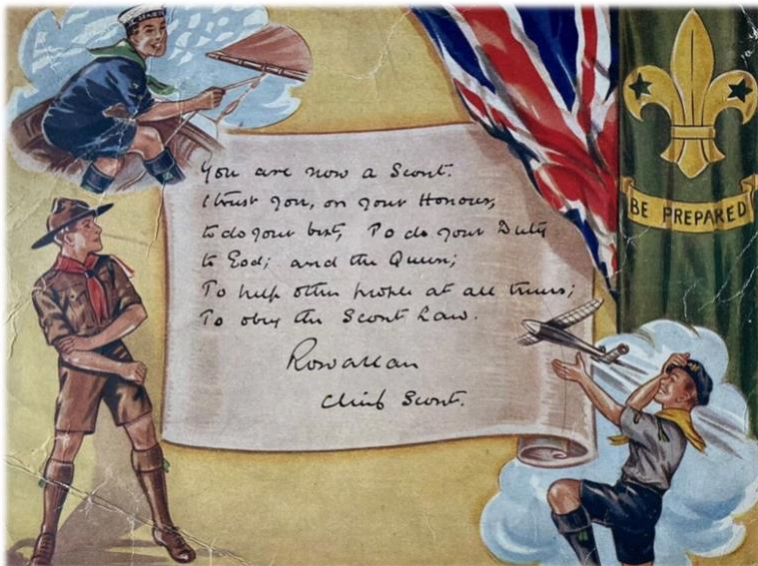 You are now a Scout.
I trust you, on your Honour,
to do your best, To do your Duty
to God; and the Queen;
To help other people at all times;
To obey the Scout Law.
Rowallan
Chief Scout.
BE PREPARED